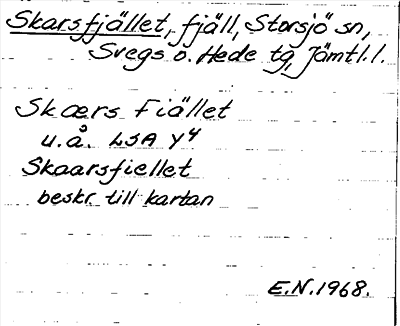 Skarsfjället, fjäll, Storsjö sn,
Svegs o. Hede tg, Jämtl.l.
Skærs Fiället
u.å. LSA Y4
Skaarsfiellet
beskr till kartan
E.N.1968.